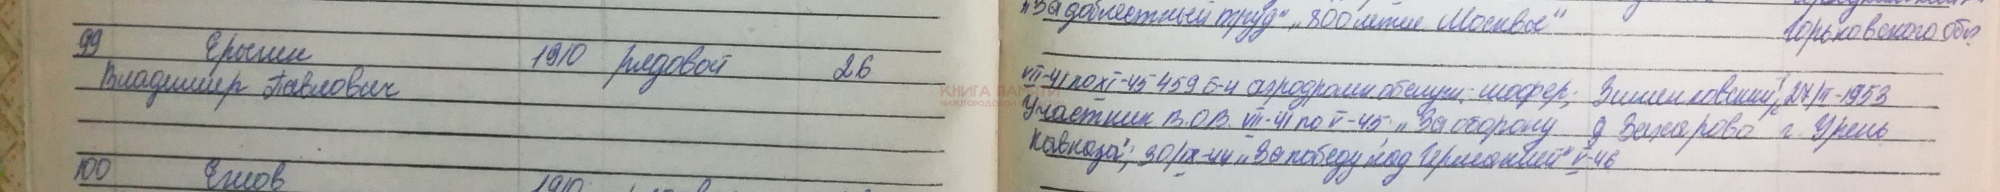 "За доблестный труд", "800 летие Москвы"
Горьковского обл
99 Ерышин 1910 рядовой 26
Владимир Павлович
КНИГА ПАМЯТИ
VII-41 по XI-45 459 б-н аэродромн обслуж. шофер;
27/III-1953
Участник В.О.В. VII-41 по V-45 "За оборону д Захарово г. Урень
Кавказа"; 30/IX-44 "За победу над Германией" V-46
100 Ежов 1910